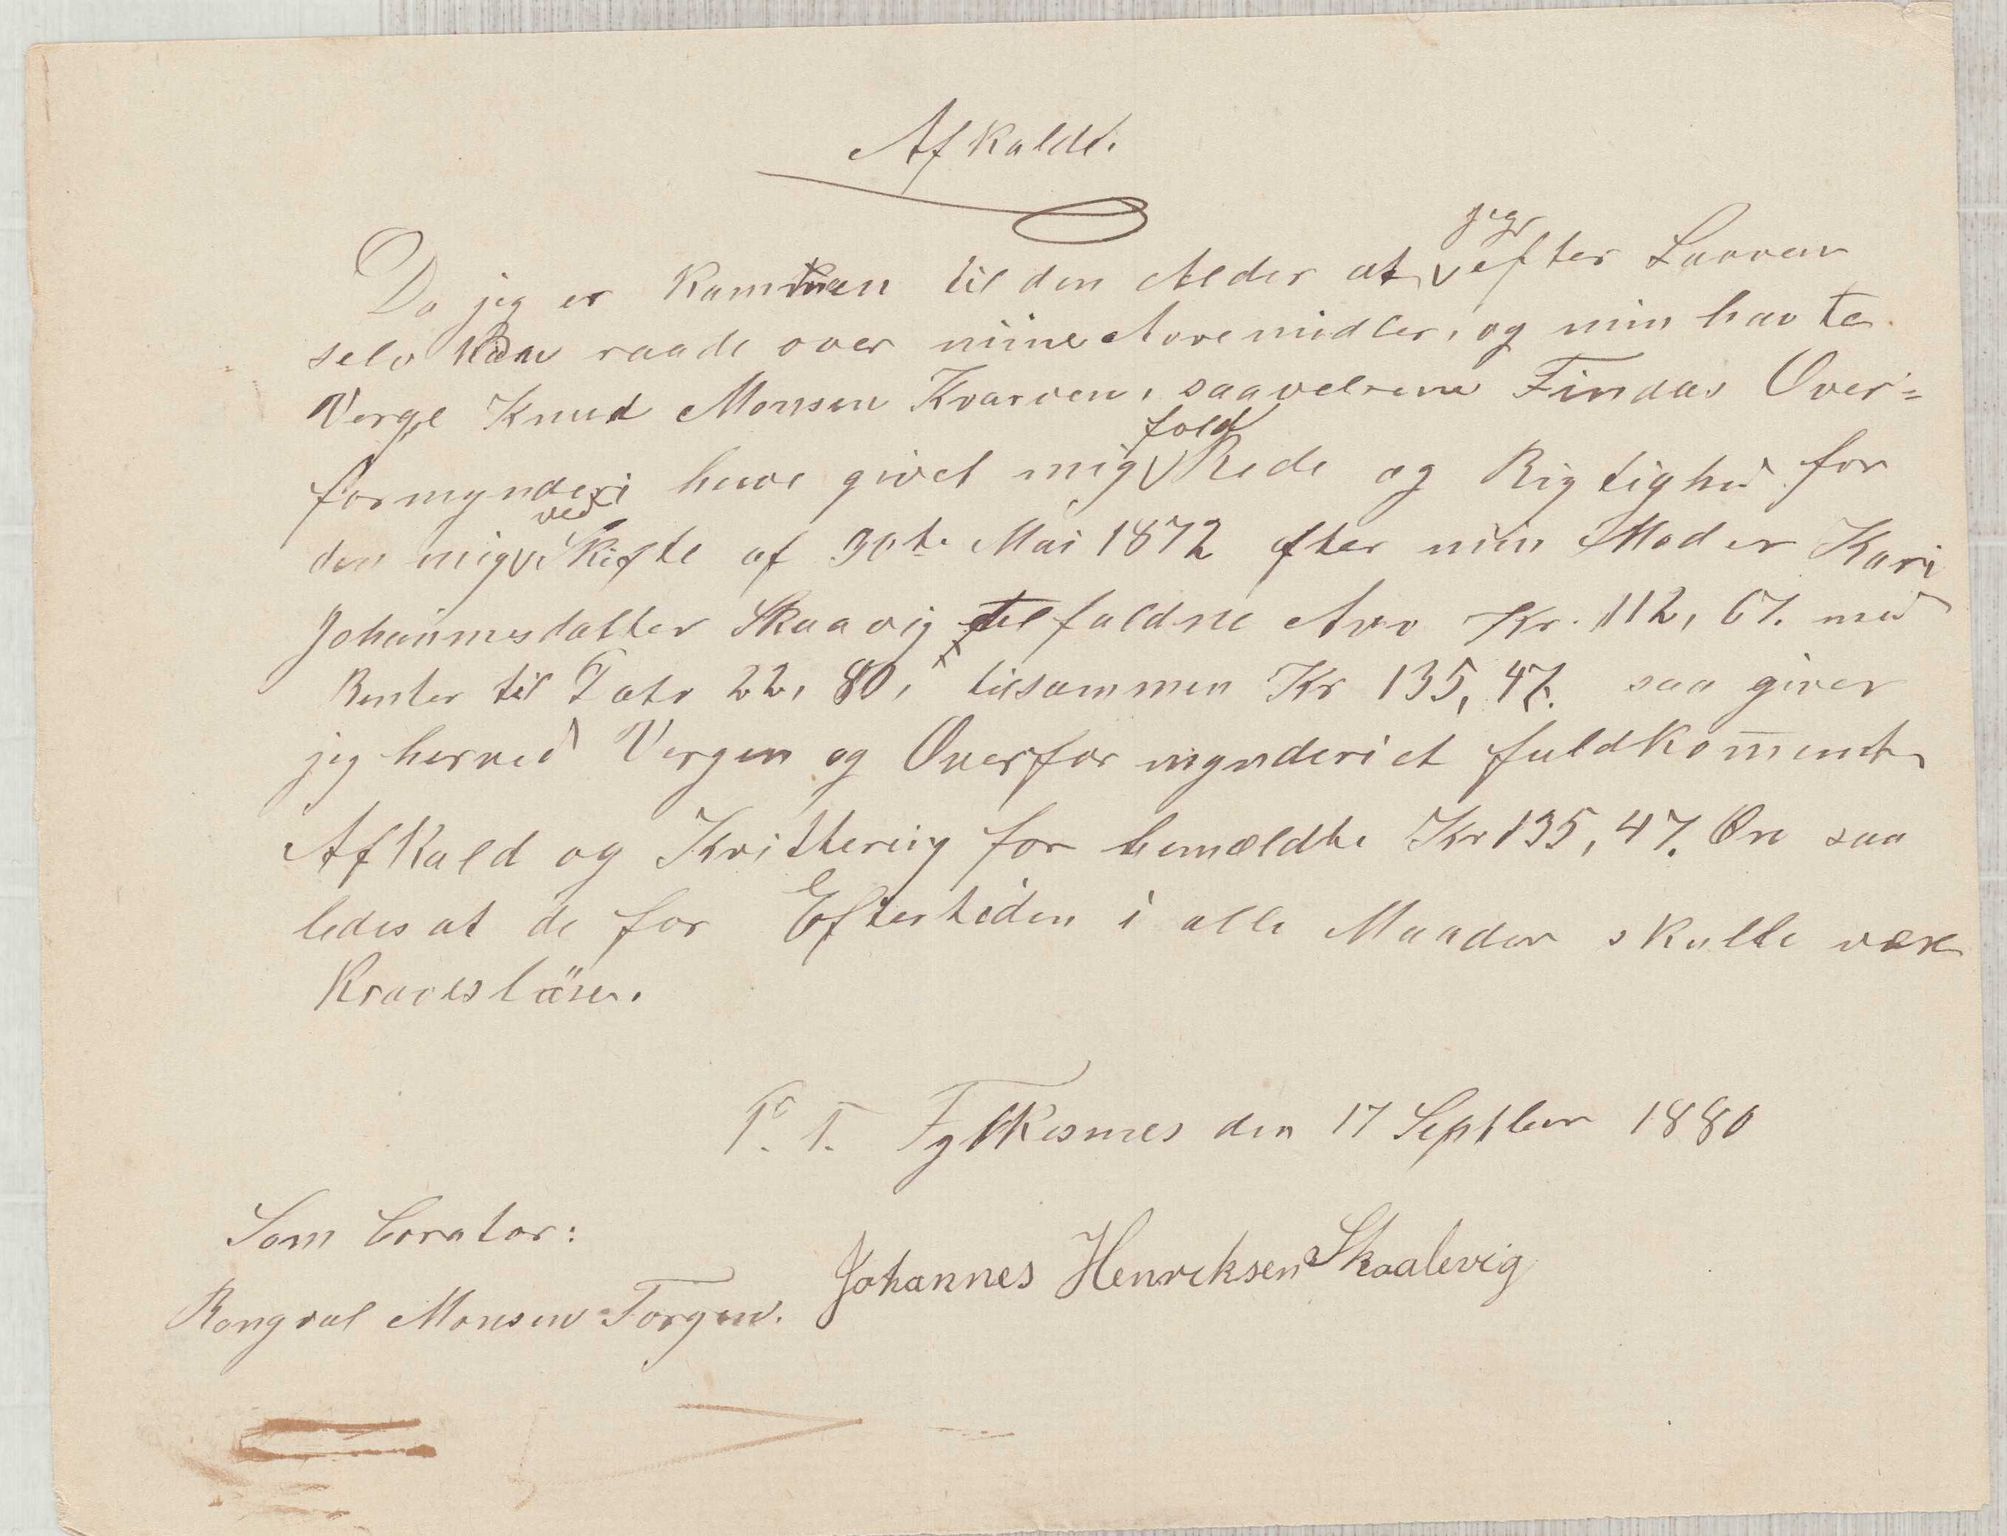 Afkald.
Da jeg er kommen til den Alder at jeg efter Loven
selv kan raade over mine Arvemidler, og min havte
Verge Knud Monsen Kvarven, saavelsom Findaas Over=
formynderi have givet mig fold Rede og Rigtighed for
den mig ved Skifte af 30te Mai 1872 efter min Moder Kari
Johannesdatter Skaavig tilfaldne Arv Kr. 112, 67. med
Renter til Dato 22, 80, tilsammen Kr 135, 47. saa giver
jeg herved Vergen og Overformynderiet fuldkommente
Afkald og Kvittering for bemældte Kr 135, 47. Øre saa
ledes at de for Eftertiden i alle Maader skulle være
Kravesløse.
P. T. Fylkesnes den 17 Septber 1880
Som Corator:
Johannes Henreksen Skaalevig
Rongval Monsen Torgen.